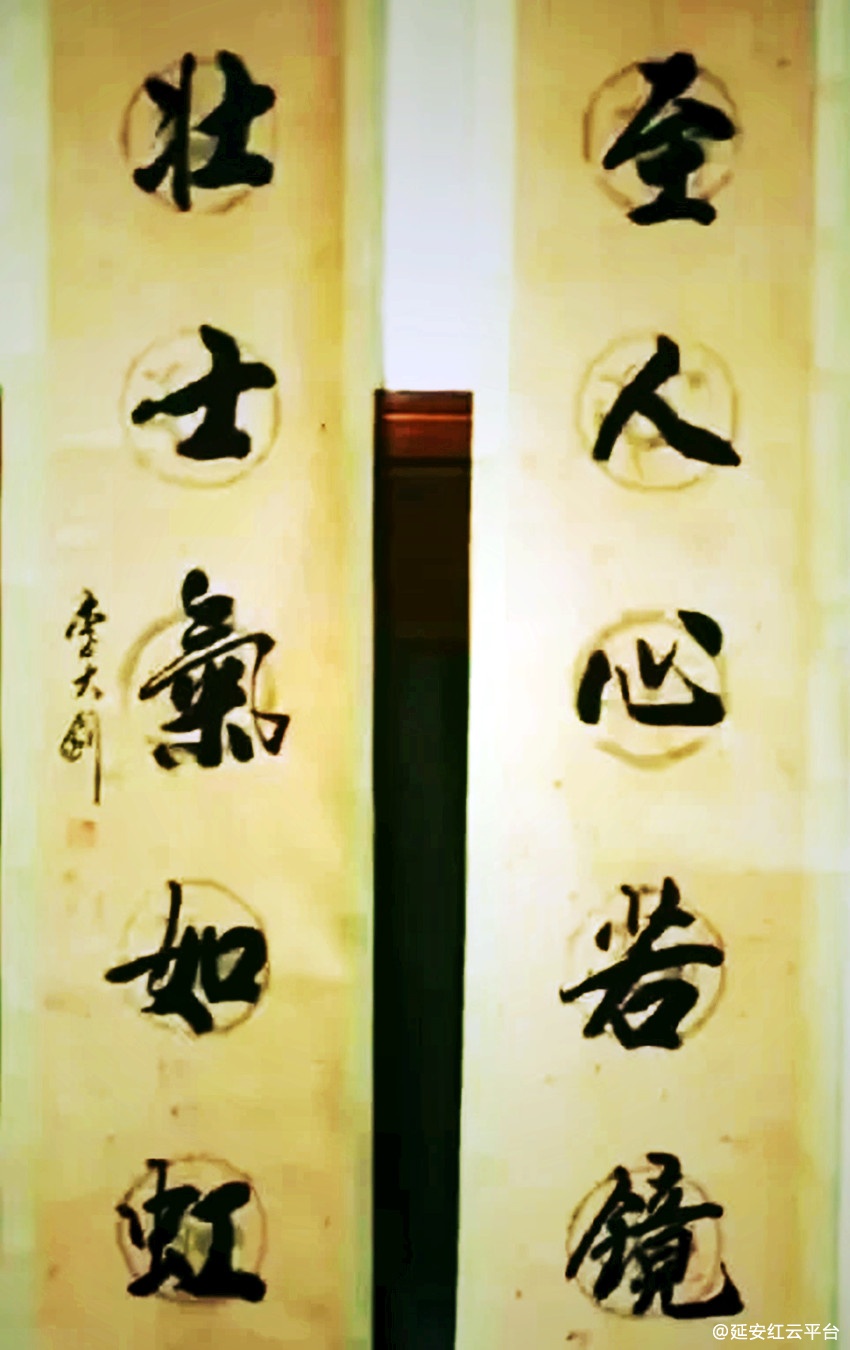 至人心若镜
壮士氣如虹
李大钊
@延安红云平台